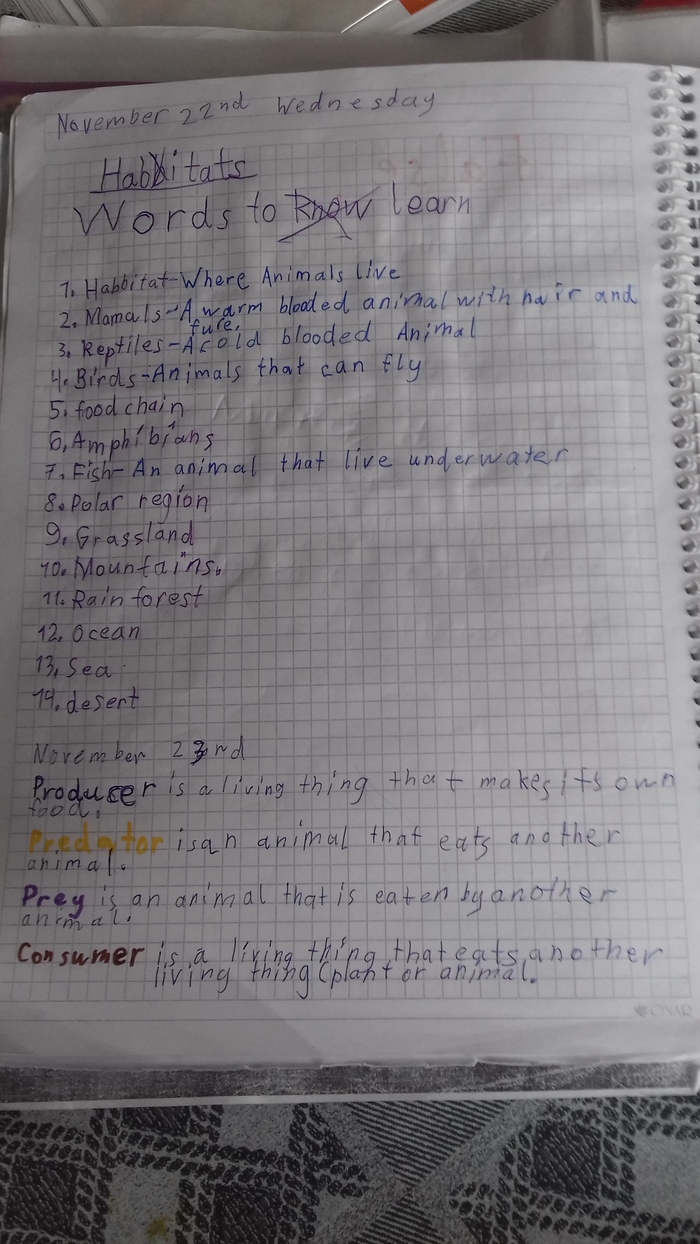 November 22nd Wednesday
Habitats
Words to learn
1. Habbitat-Where Animals live
2. Mamals-A warm blooded animal with hair and
fure.
3. Reptiles-A cold blooded Animal
4. Birds-Animals that can fly
5. food chain
6. Amphibians
7. Fish-An animal that live underwater
8. Polar region
9. Grassland
10. Mountains.
11. Rain forest
12. Ocean
13. Sea
14. desert
November 23rd
Producer is a living thing that makes its own
food.
Predator is an animal that eats another
animal.
Prey is an animal that is eaten by another
animal.
Consumer is a living thing that eats another
living thing (plant or animal.